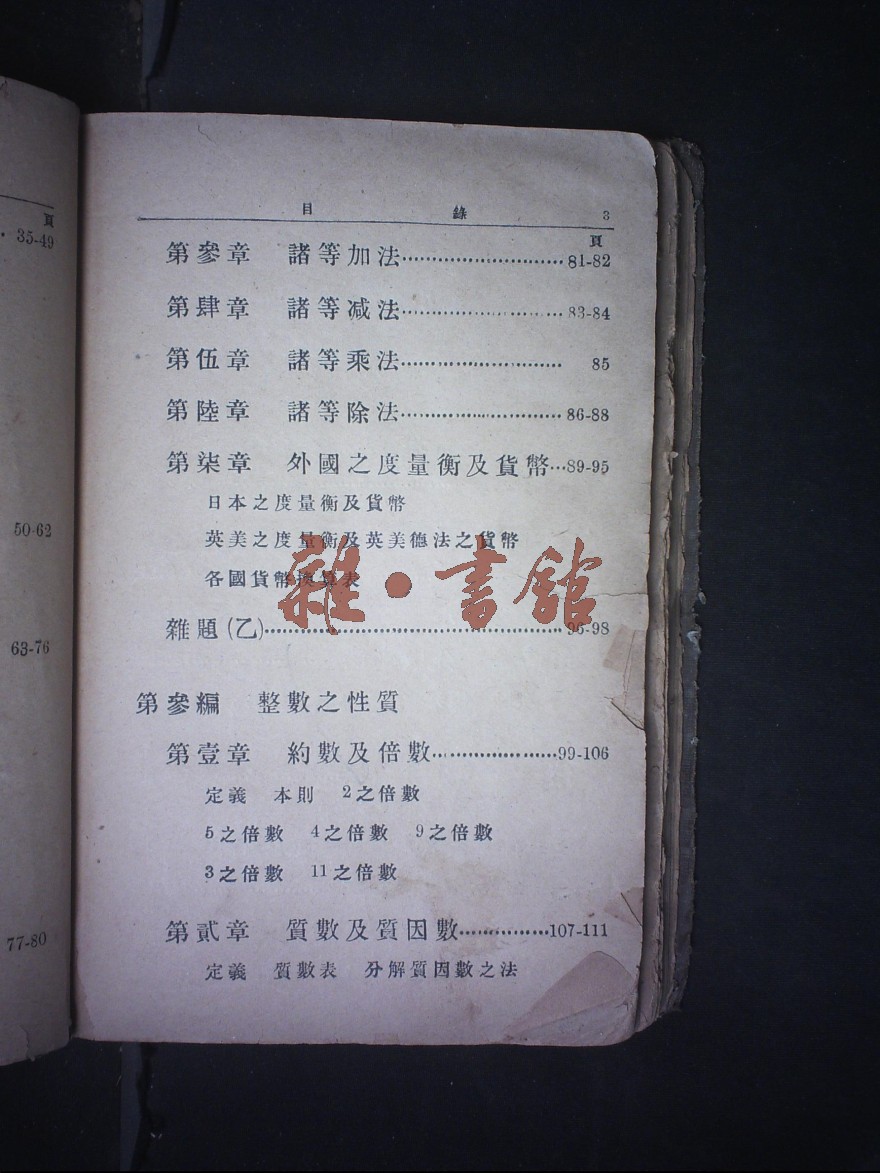 頁
35-49
50-62
63-76
77-80
目 錄 3
頁
第參章 諸等加法………………………81-82
第肆章 諸等減法………………………83-84
第伍章 諸等乘法……………………… 85
第陸章 諸等除法………………………86-88
第柒章 外國之度量衡及貨幣…89-95
日本之度量衡及貨幣
英美之度量衡及英美德法之貨幣
各國貨幣換算表
雜·書館
雜題(乙)………………………………96-98
第參編 整數之性質
第壹章 約數及倍數…………………99-106
定義 本則 2之倍數
5之倍數 4之倍數 9之倍數
3之倍數 11之倍數
第貳章 質數及質因數……………107-111
定義 質數表 分解質因數之法